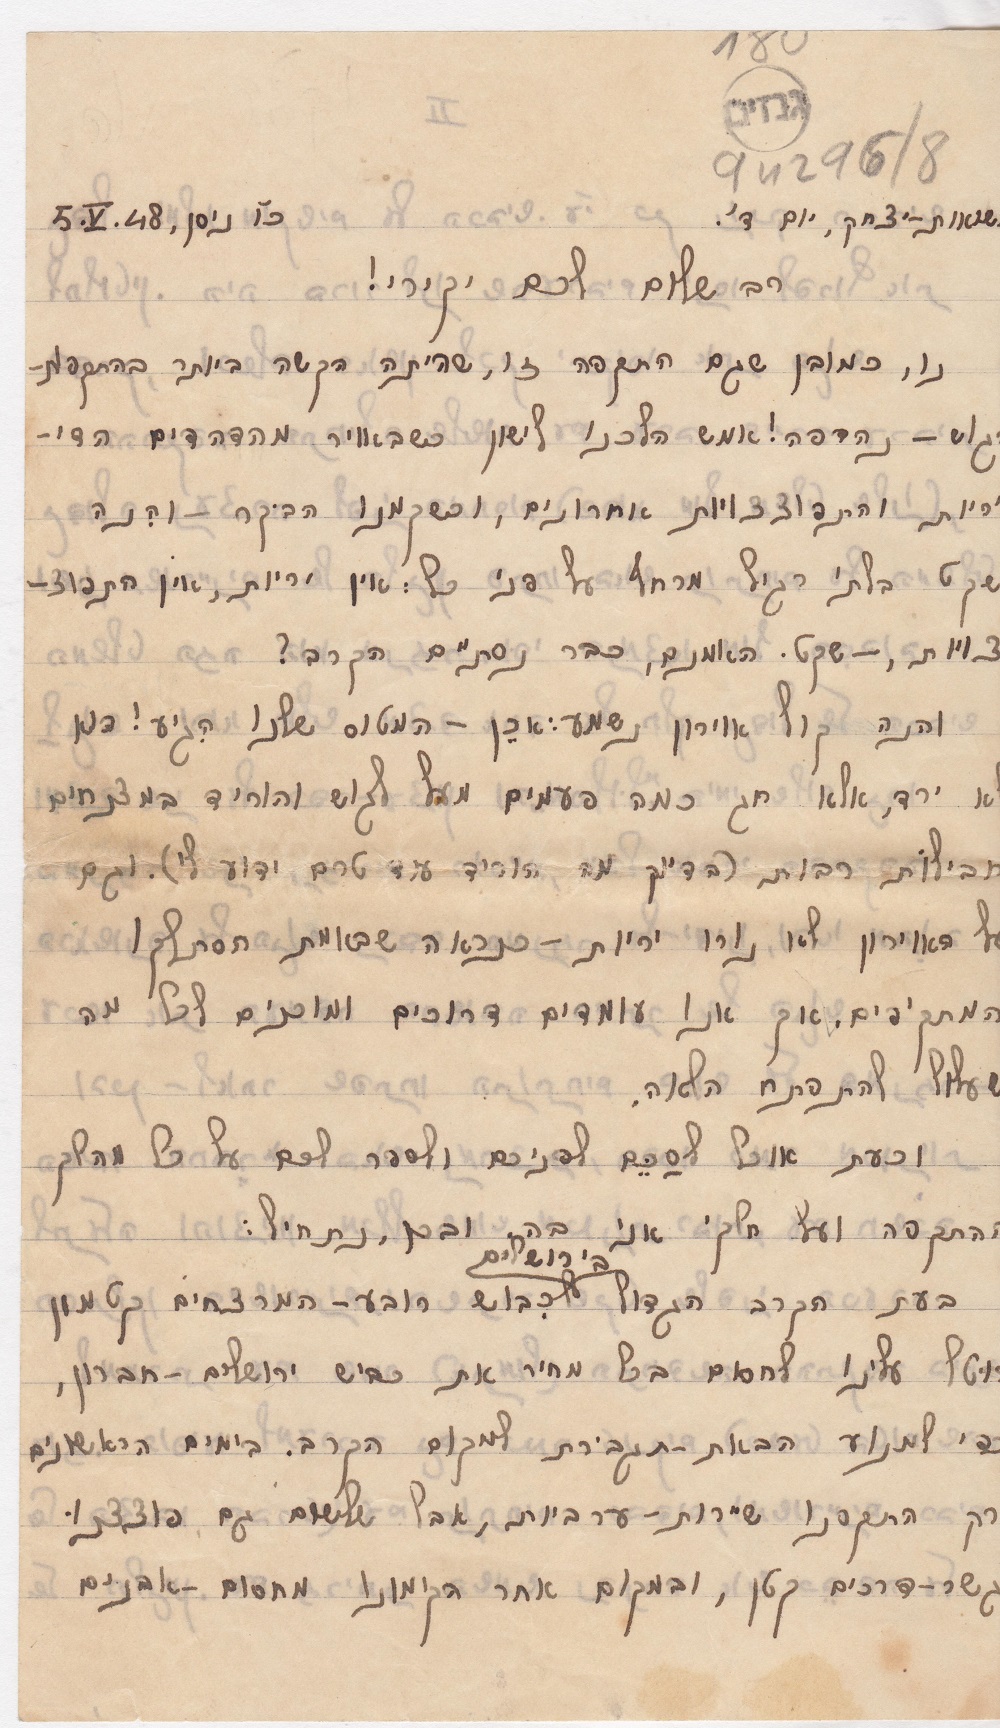 180
גנזים
94296/8
משואות-יצחק, יום ד'. כ"ו ניסן, 5.V.48
רב שלום לכם יקירי!
נו, כמובן שגם התקפה זו, שהיתה הקשה ביותר בהתקפות-
הגוש – נהדפה! אמש הלכנו לישון כשבאוויר מהדהדים הדי-
יריות והתפוצצויות אחרונים, וכשקמנו הבוקר – והִנה
שקט בלתי רגיל מרחף על פני כל: אין יריות, אין התפוצ-
צויות, – שקט. האומנם, כבר נסתיים הקרב?
והנה קול אווירון נשמע: אכֵן – המטוס שלנו הִגיע! הוא
לא ירד, אלא חג כמה פעמים מעל לגוש והוריד במצנחים
חבילות רבות (בדיוק מה הוריד עוד טרם ידוע לי). וגם
על האווירון לא נורו יריות – כנראה שבאמת הסתלקו
המתקיפים. אך אנו עומדים דרוכים ומוכנים לכל מה
שעלול להתפתח הלאה.
וכעת אוכל לסַכֵּם לפניכם ולספר לכם על כל מהלך
ההתקפה ועל חלקי אני בה. ובכן, נתחיל:
בירושלים
בעת הקרב הגדול לכִבוש רובע-המרצחים קטמון
הוטל עלינו לחסום בכל מחיר את כביש ירושלים-חברון,
כדי למנוע הבאת-תגבורת למקום הקרב. בימים הראשונים
רק התקפנו שיירות-ערביות, אבל שלשום גם פוצצנו
גשר-דרכים קטן, ובמקום אחר הקימונו מחסום-אבנים